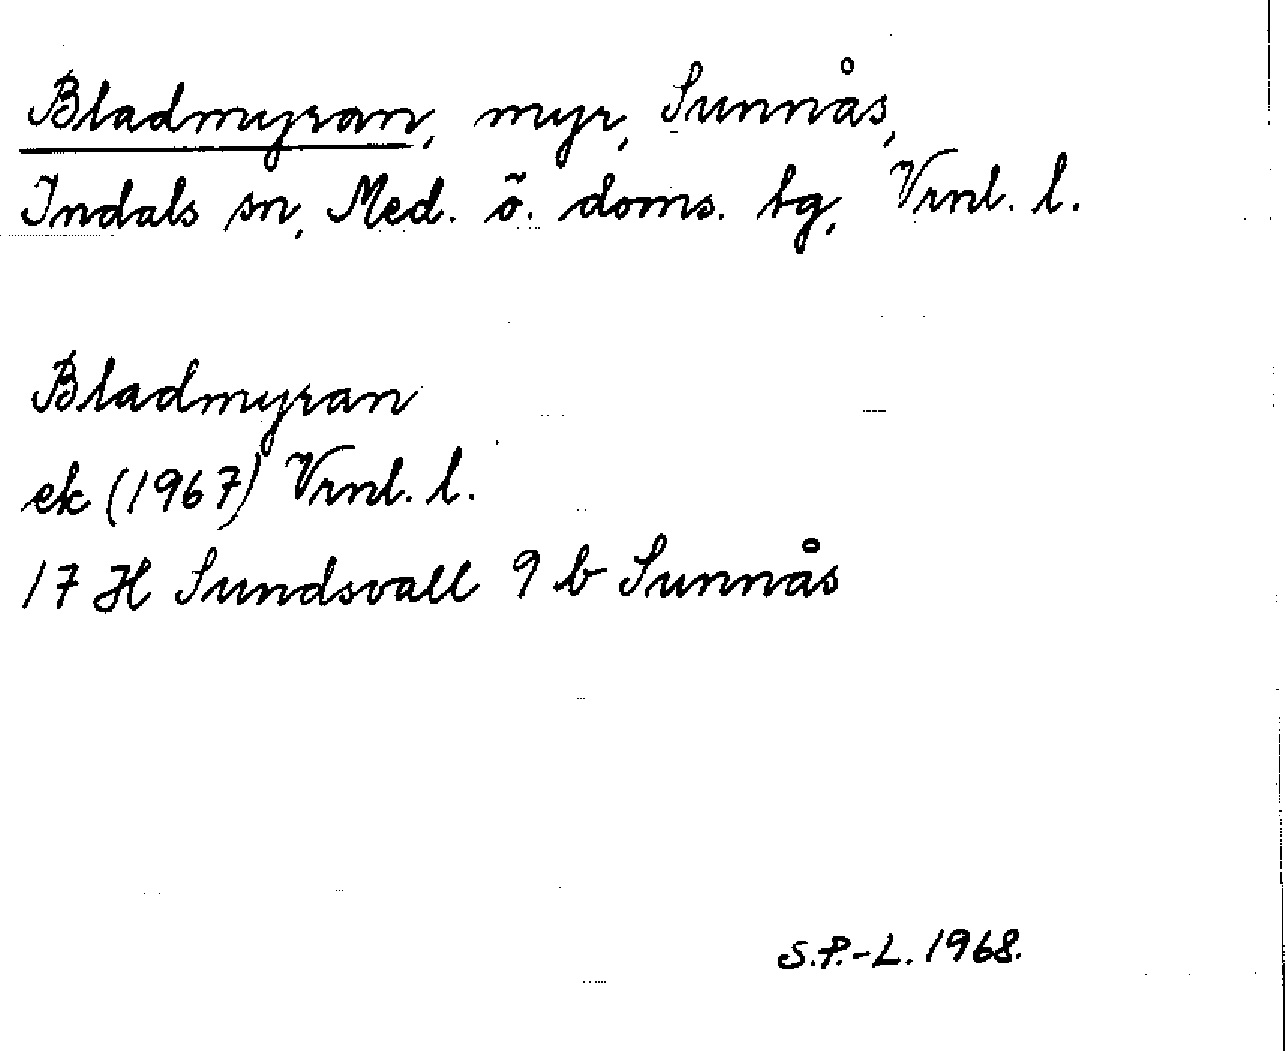 Bladmyran, myr, Sunnås,
Indals sn, Med. ö. doms. tg, Vrnl. l.
Bladmyran
ek (1967) Vrnl. l.
17 H Sundsvall 9 b Sunnås
S.P.-L. 1968.